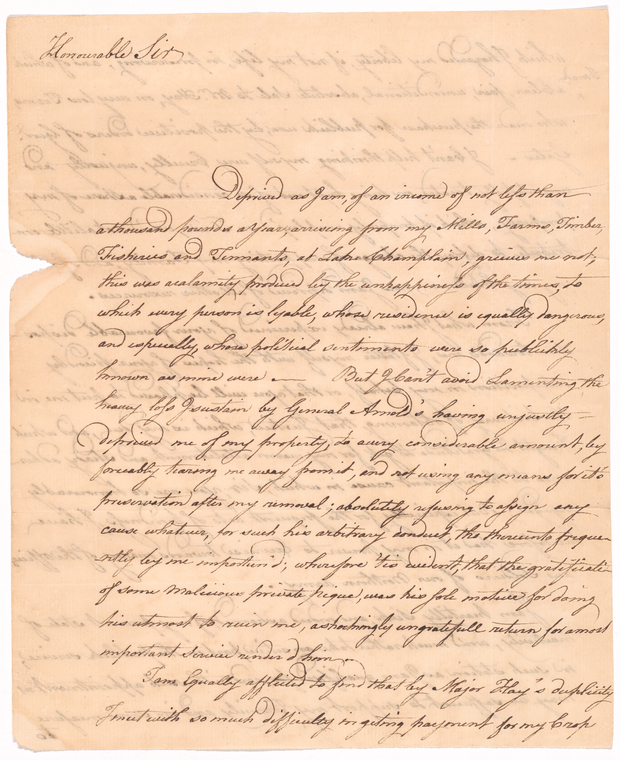 Honourable Sir
Deprived as I am, of an income of not less than
a thousand pounds a Year, arriseing from my Mills, Farms, Timber,
Fisheries and Tennants, at Lake Champlain; grieves me not,
this was a calamity produced by the unhappiness of the times, to
which every person is lyable, whose residence is equally dangerous,
and especially, whose political sentiments were so publickly
known as mine were — But I Can't avoid Lamenting, the
heavy loss I sustain by General Arnold's having unjustly –
deprived me of my property, to a very considerable amount, by
forceably tearing me away from it, and not using any means for it's
preservation after my removal; absolutely refusing to assign any
cause whatever, for such his arbitrary conduct, tho thereunto freque-
ntly by me importun'd; wherefore 'tis evident, that the gratificati-
of some malicious private pique, was his sole motive for doing
his utmost to ruin me, a shockingly ungratefull return for a most
important Service render'd him —
I am Equally afflicted to find that by Major Hay's duplicity
I met with so much difficulty in geting payment for my Crop